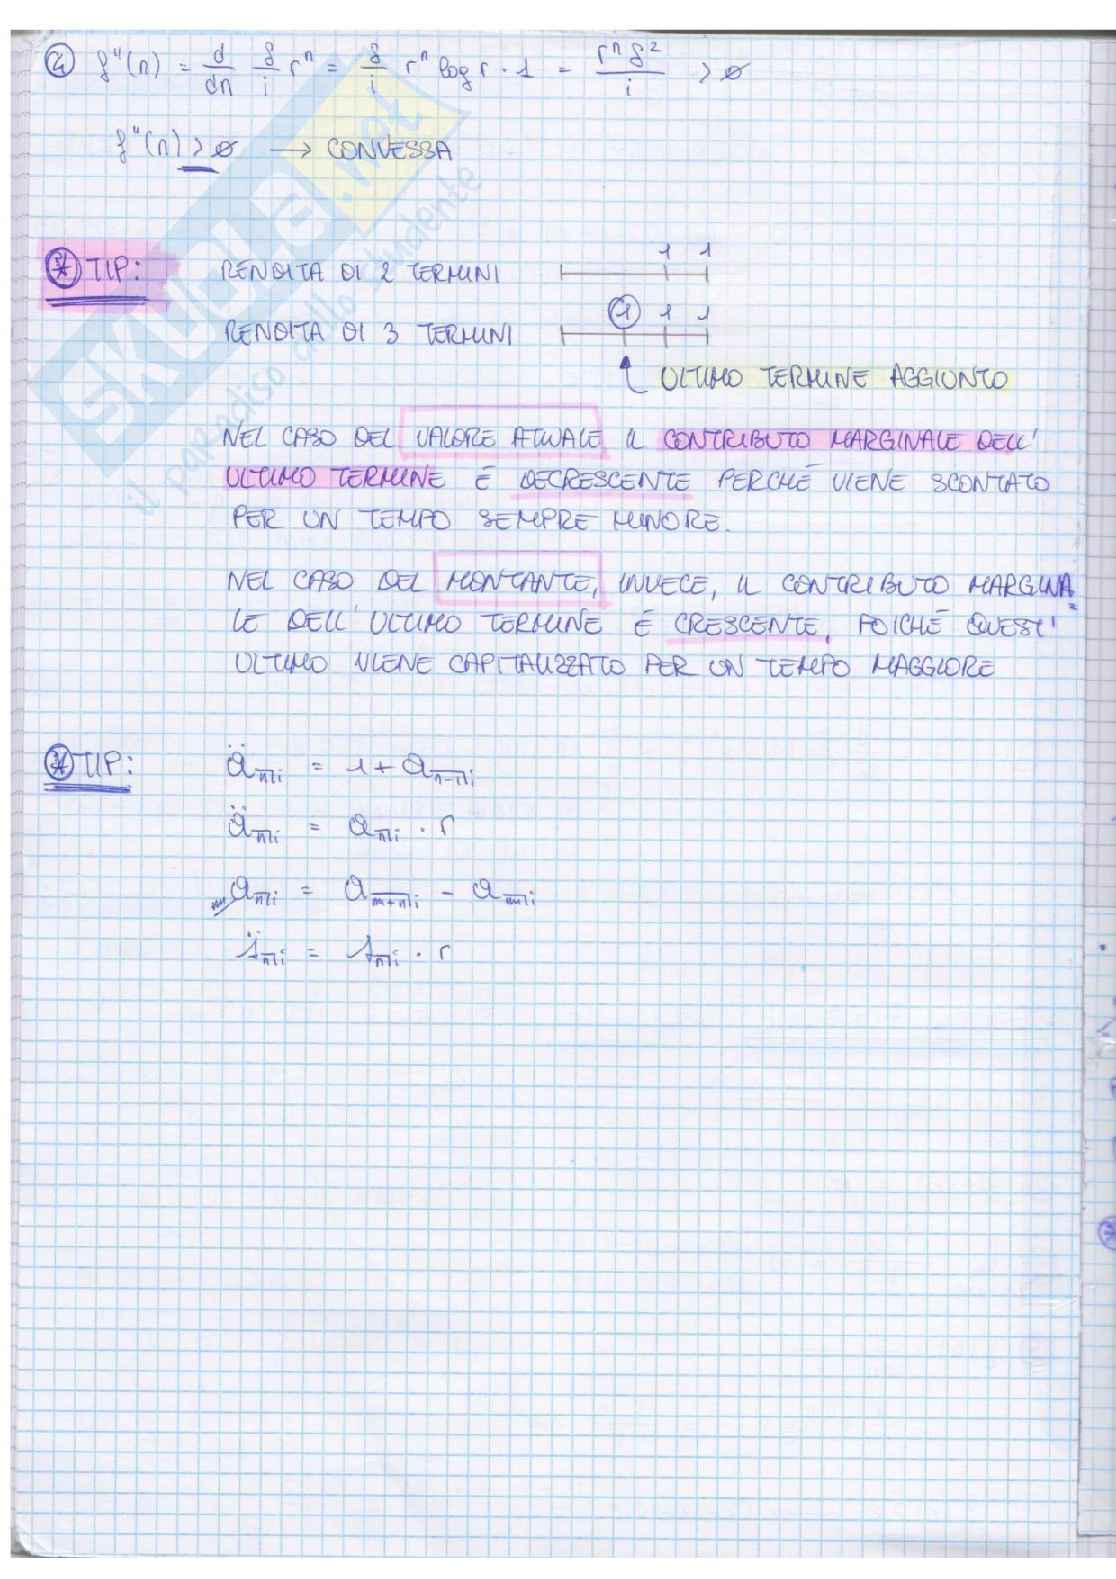 ② f"(n) = d/dn δ/i rⁿ = δ/i rⁿ log r · 1 = rⁿ δ²/i > 0
f"(n) > 0 → CONVESSA
* TIP: RENDITA DI 2 TERMINI 1 1
RENDITA DI 3 TERMINI 1 1 1
ULTIMO TERMINE AGGIUNTO
NEL CASO DEL VALORE ATTUALE IL CONTRIBUTO MARGINALE DELL'
ULTIMO TERMINE È DECRESCENTE PERCHÉ VIENE SCONTATO
PER UN TEMPO SEMPRE MINORE.
NEL CASO DEL MONTANTE, INVECE, IL CONTRIBUTO MARGINA
LE DELL'ULTIMO TERMINE È CRESCENTE, POICHÉ QUEST'
ULTIMO VIENE CAPITALIZZATO PER UN TEMPO MAGGIORE
* TIP: ä_n̅|i = 1 + a_n-1̅|i
ä_n̅|i = a_n̅|i · r
m/a_n̅|i = a_m+n̅|i - a_m̅|i
s̈_n̅|i = s_n̅|i · r
SKUOLA.net
il paradiso dello studente